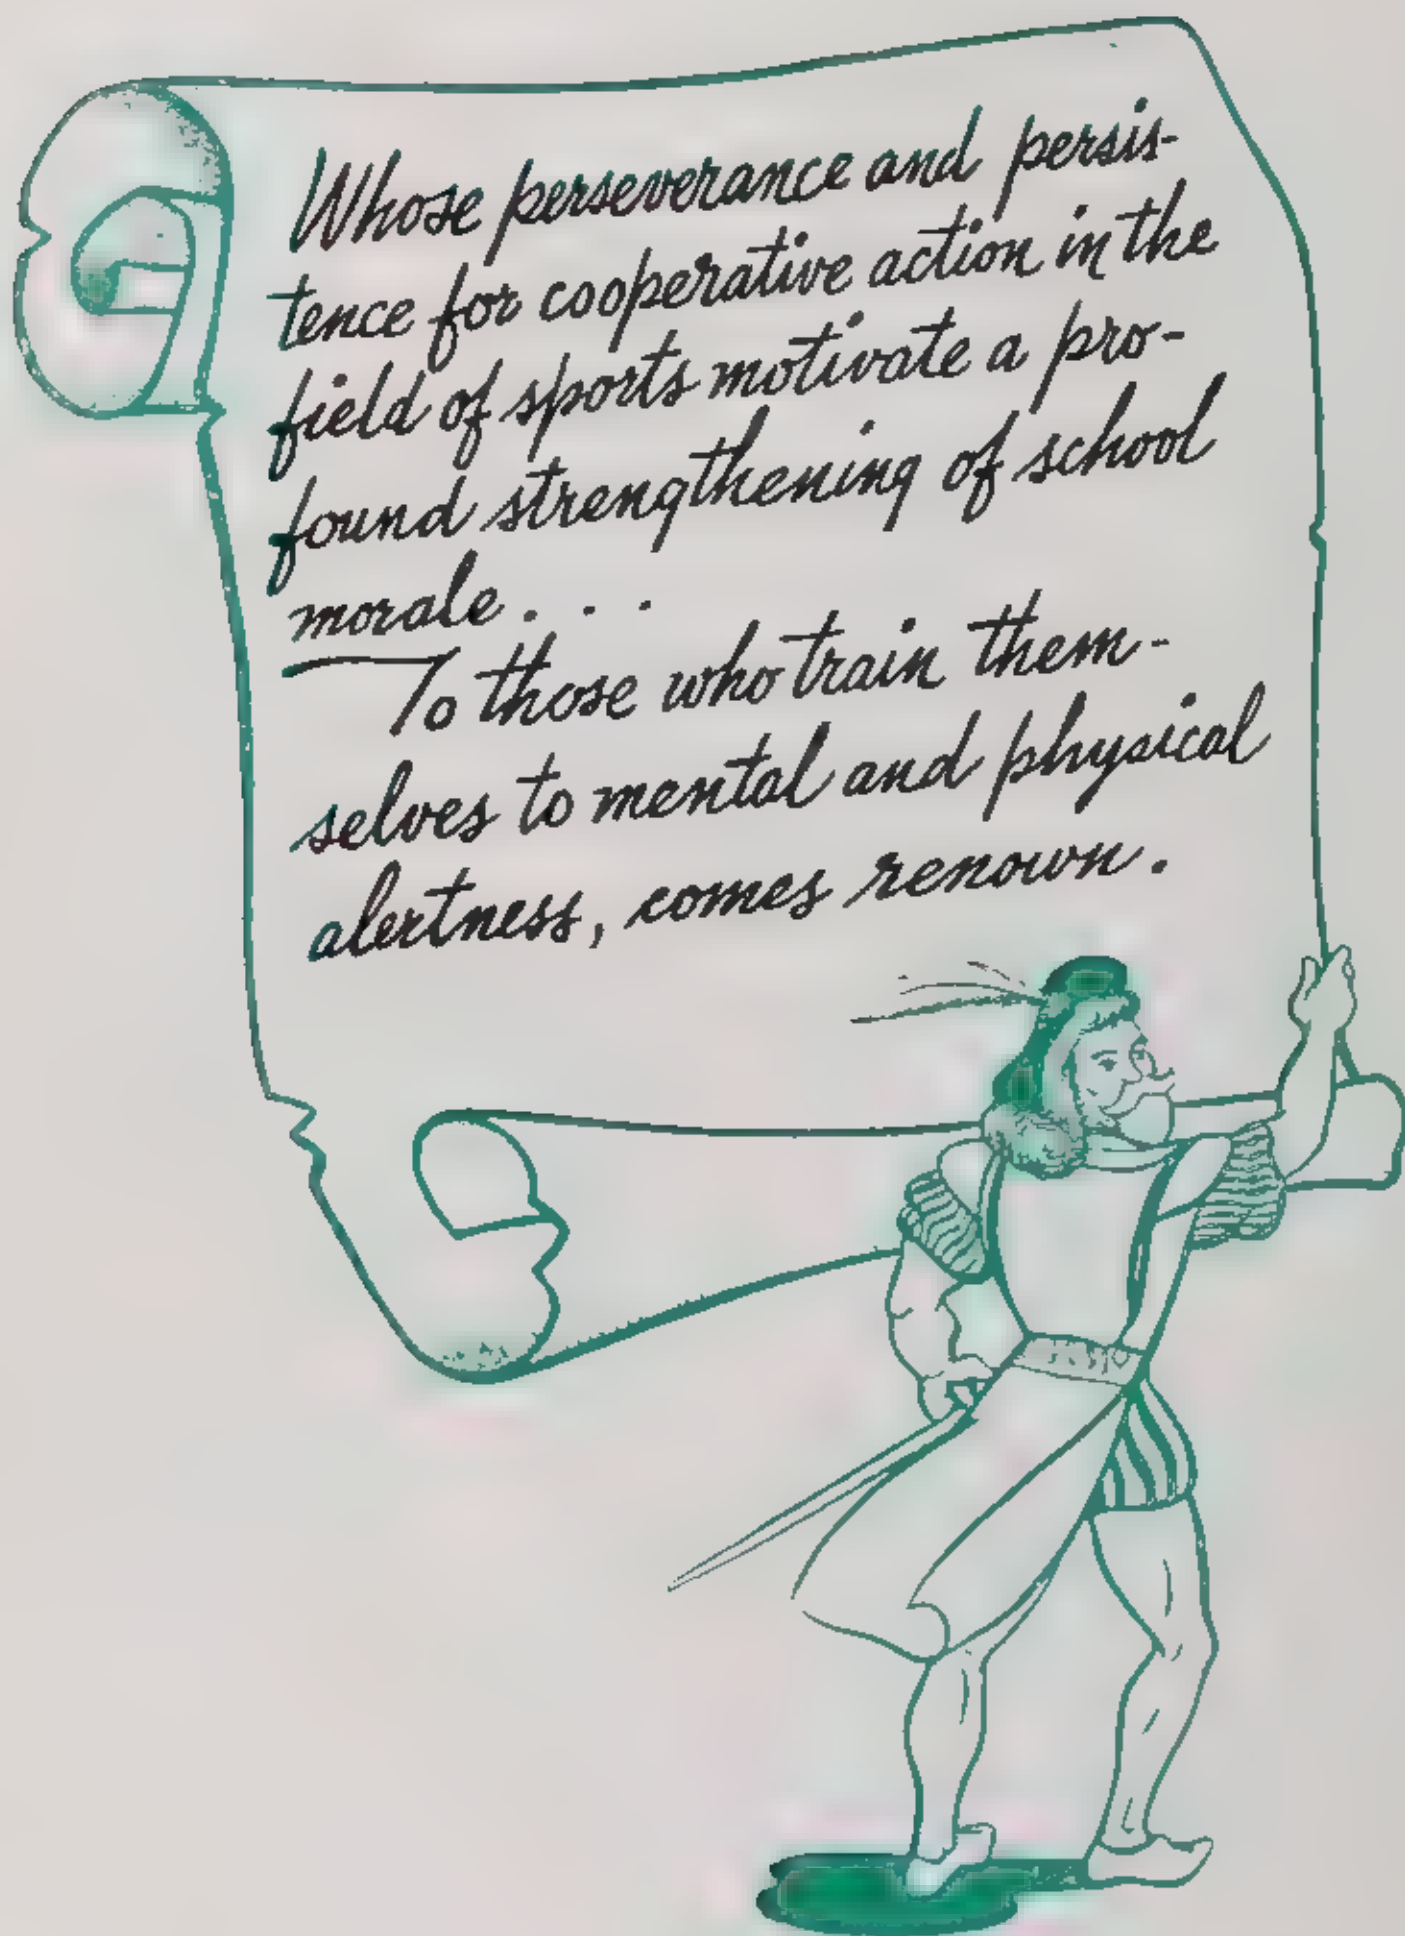 Whose perseverance and persis-
tence for cooperative action in the
field of sports motivate a pro-
found strengthening of school
morale . . .
To those who train them-
selves to mental and physical
alertness, comes renown.